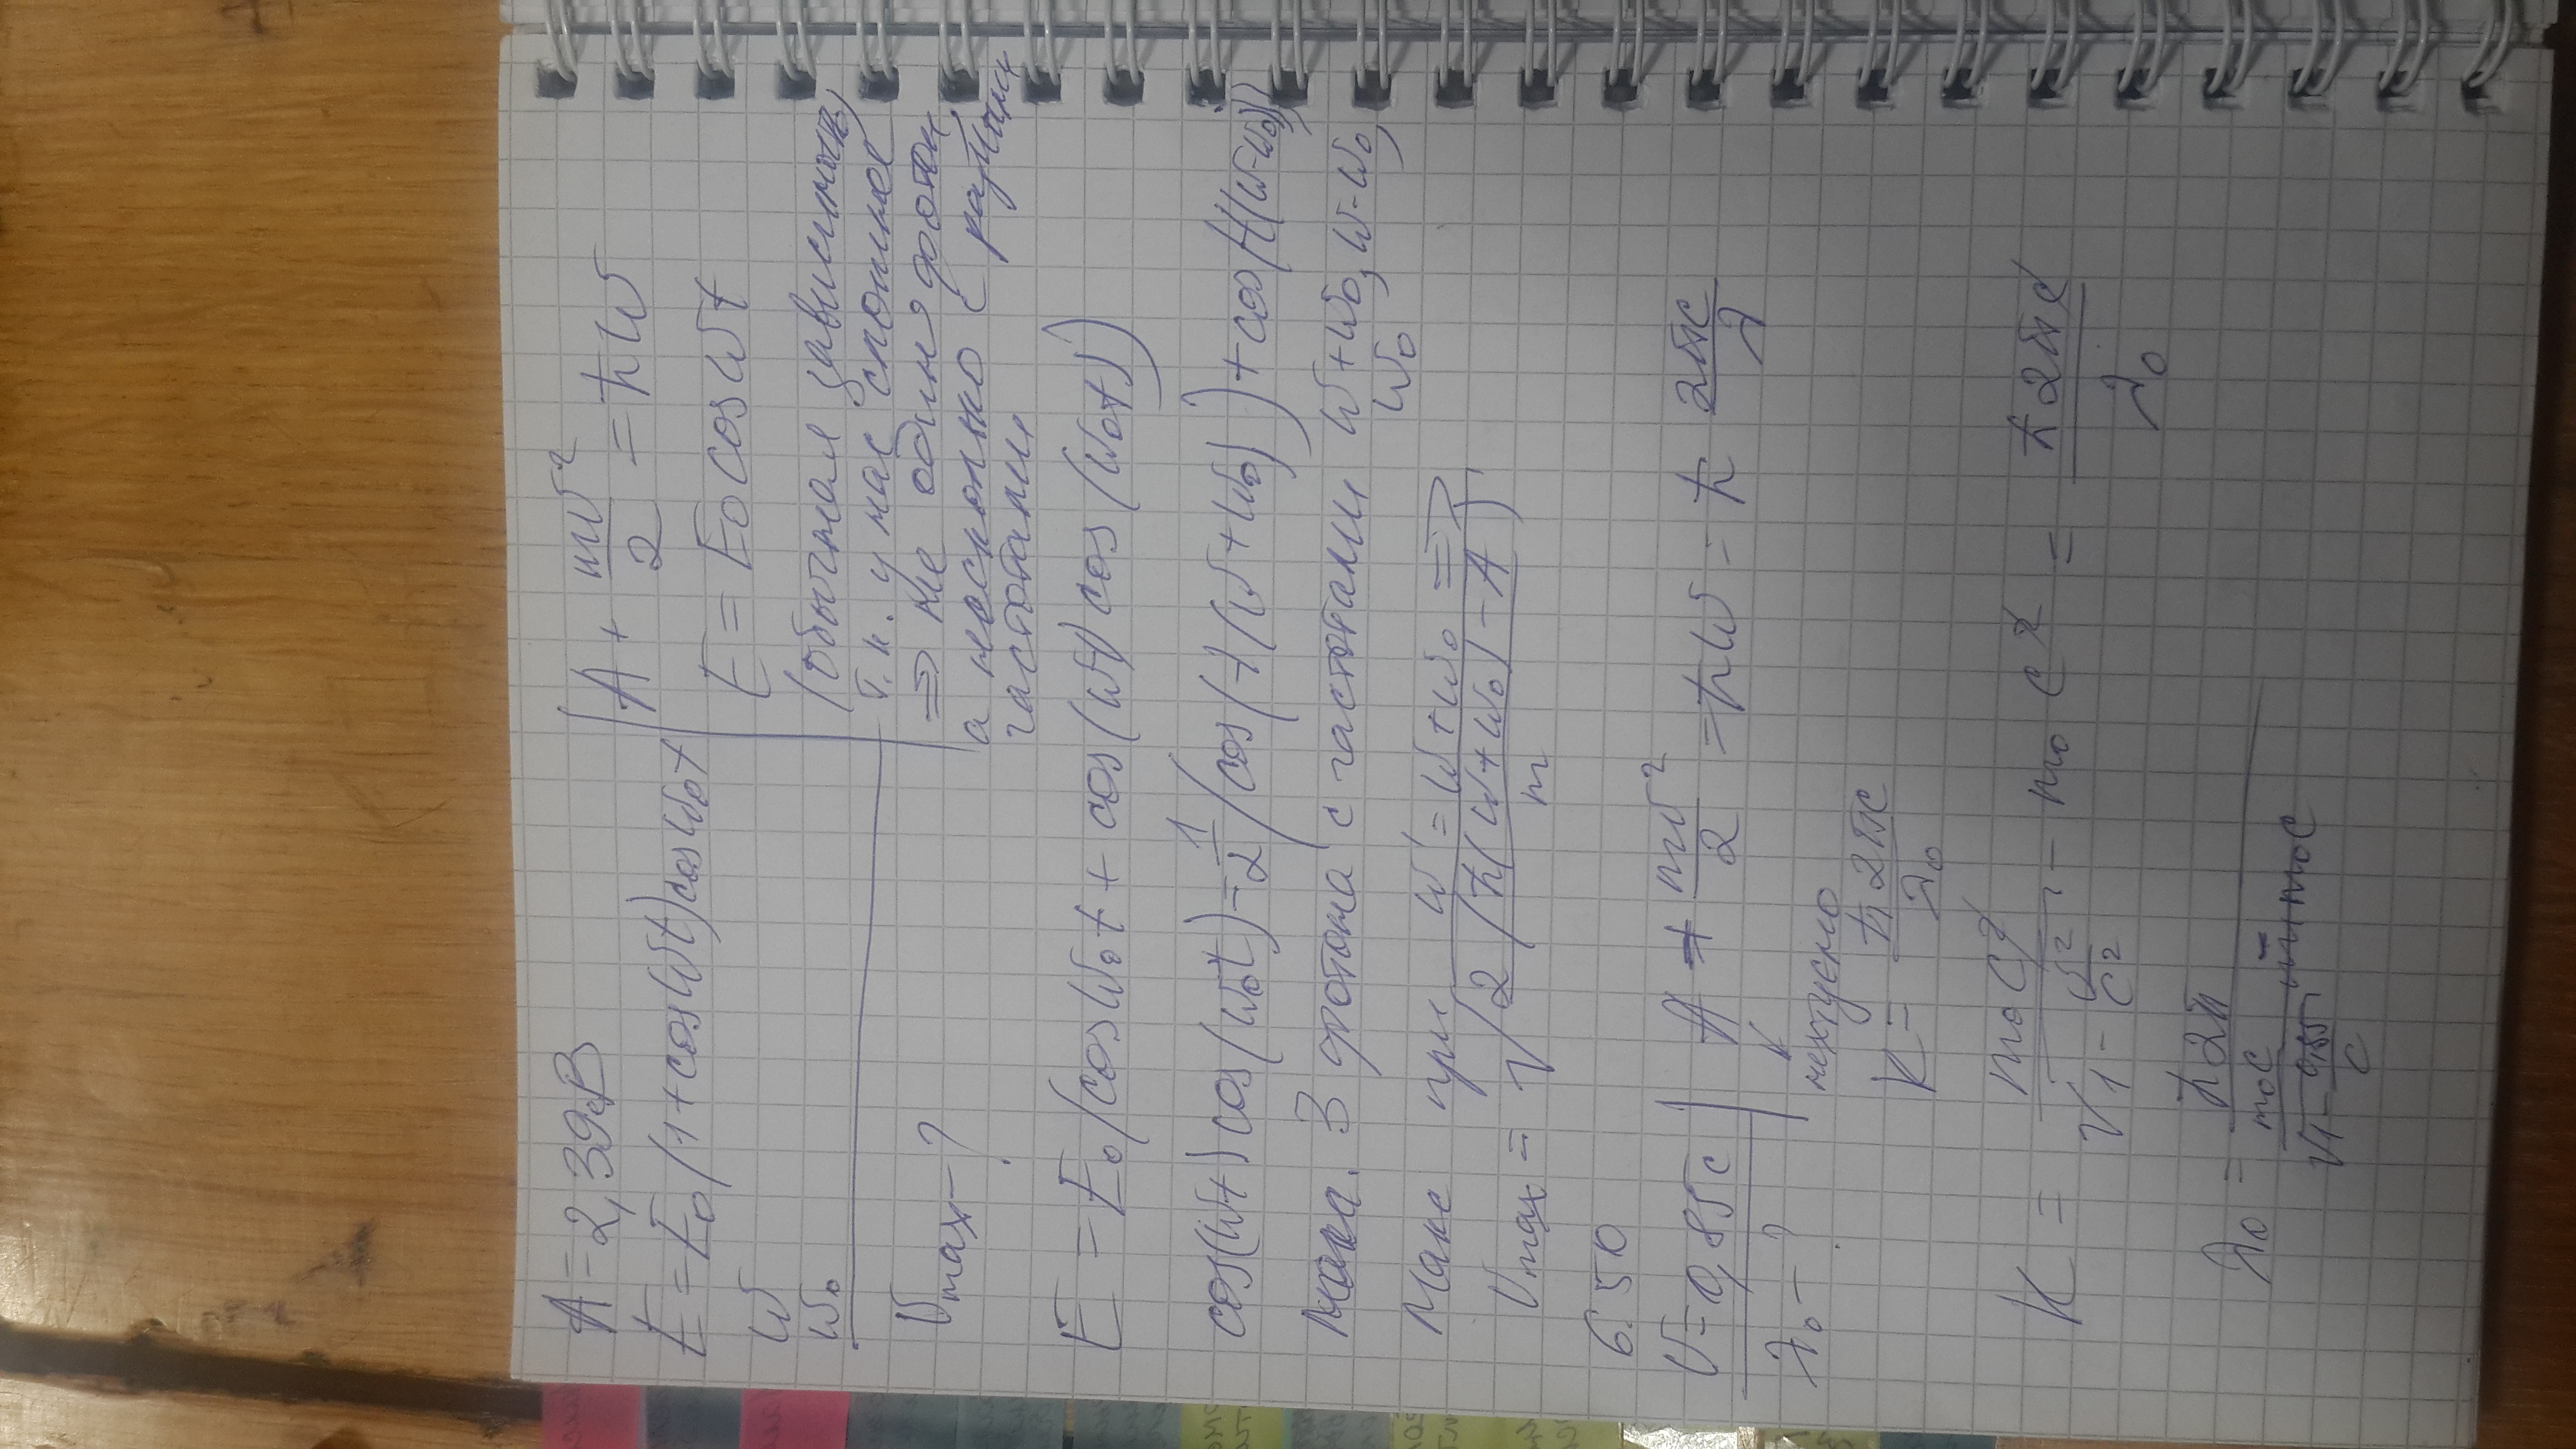 A = 2,39эВ
E = E₀(1+cosωt)cosω₀t
ω
ω₀
Vmax - ?
A + mv²/2 = ħω
E = E₀cosωt
(обычная зависимость)
т.к. у нас сложнее
=> не один фотон,
а несколько с разными
частотами
E = E₀(cosω₀t + cos(ωt) cos(ω₀t))
cos(ωt) cos(ω₀t) = 1/2 (cos(t(ω+ω₀)) + cos(t(ω-ω₀)))
3 фотона с частотами ω+ω₀, ω-ω₀,
ω₀
Макс при ω' = ω+ω₀ =>
Vmax = √(2(ħ(ω+ω₀) - A)/m)
6.50
V = 0,85c
λ₀ - ?
A + mv²/2 = ħω = ħ 2πc/λ
нехтуємо
K = ħ2πc/λ₀
K = m₀c²/√(1 - v²/c²) - m₀c² = ħ2πc/λ₀
λ₀ = ħ2π/(m₀c/√(1 - 0,85/c) - m₀c)